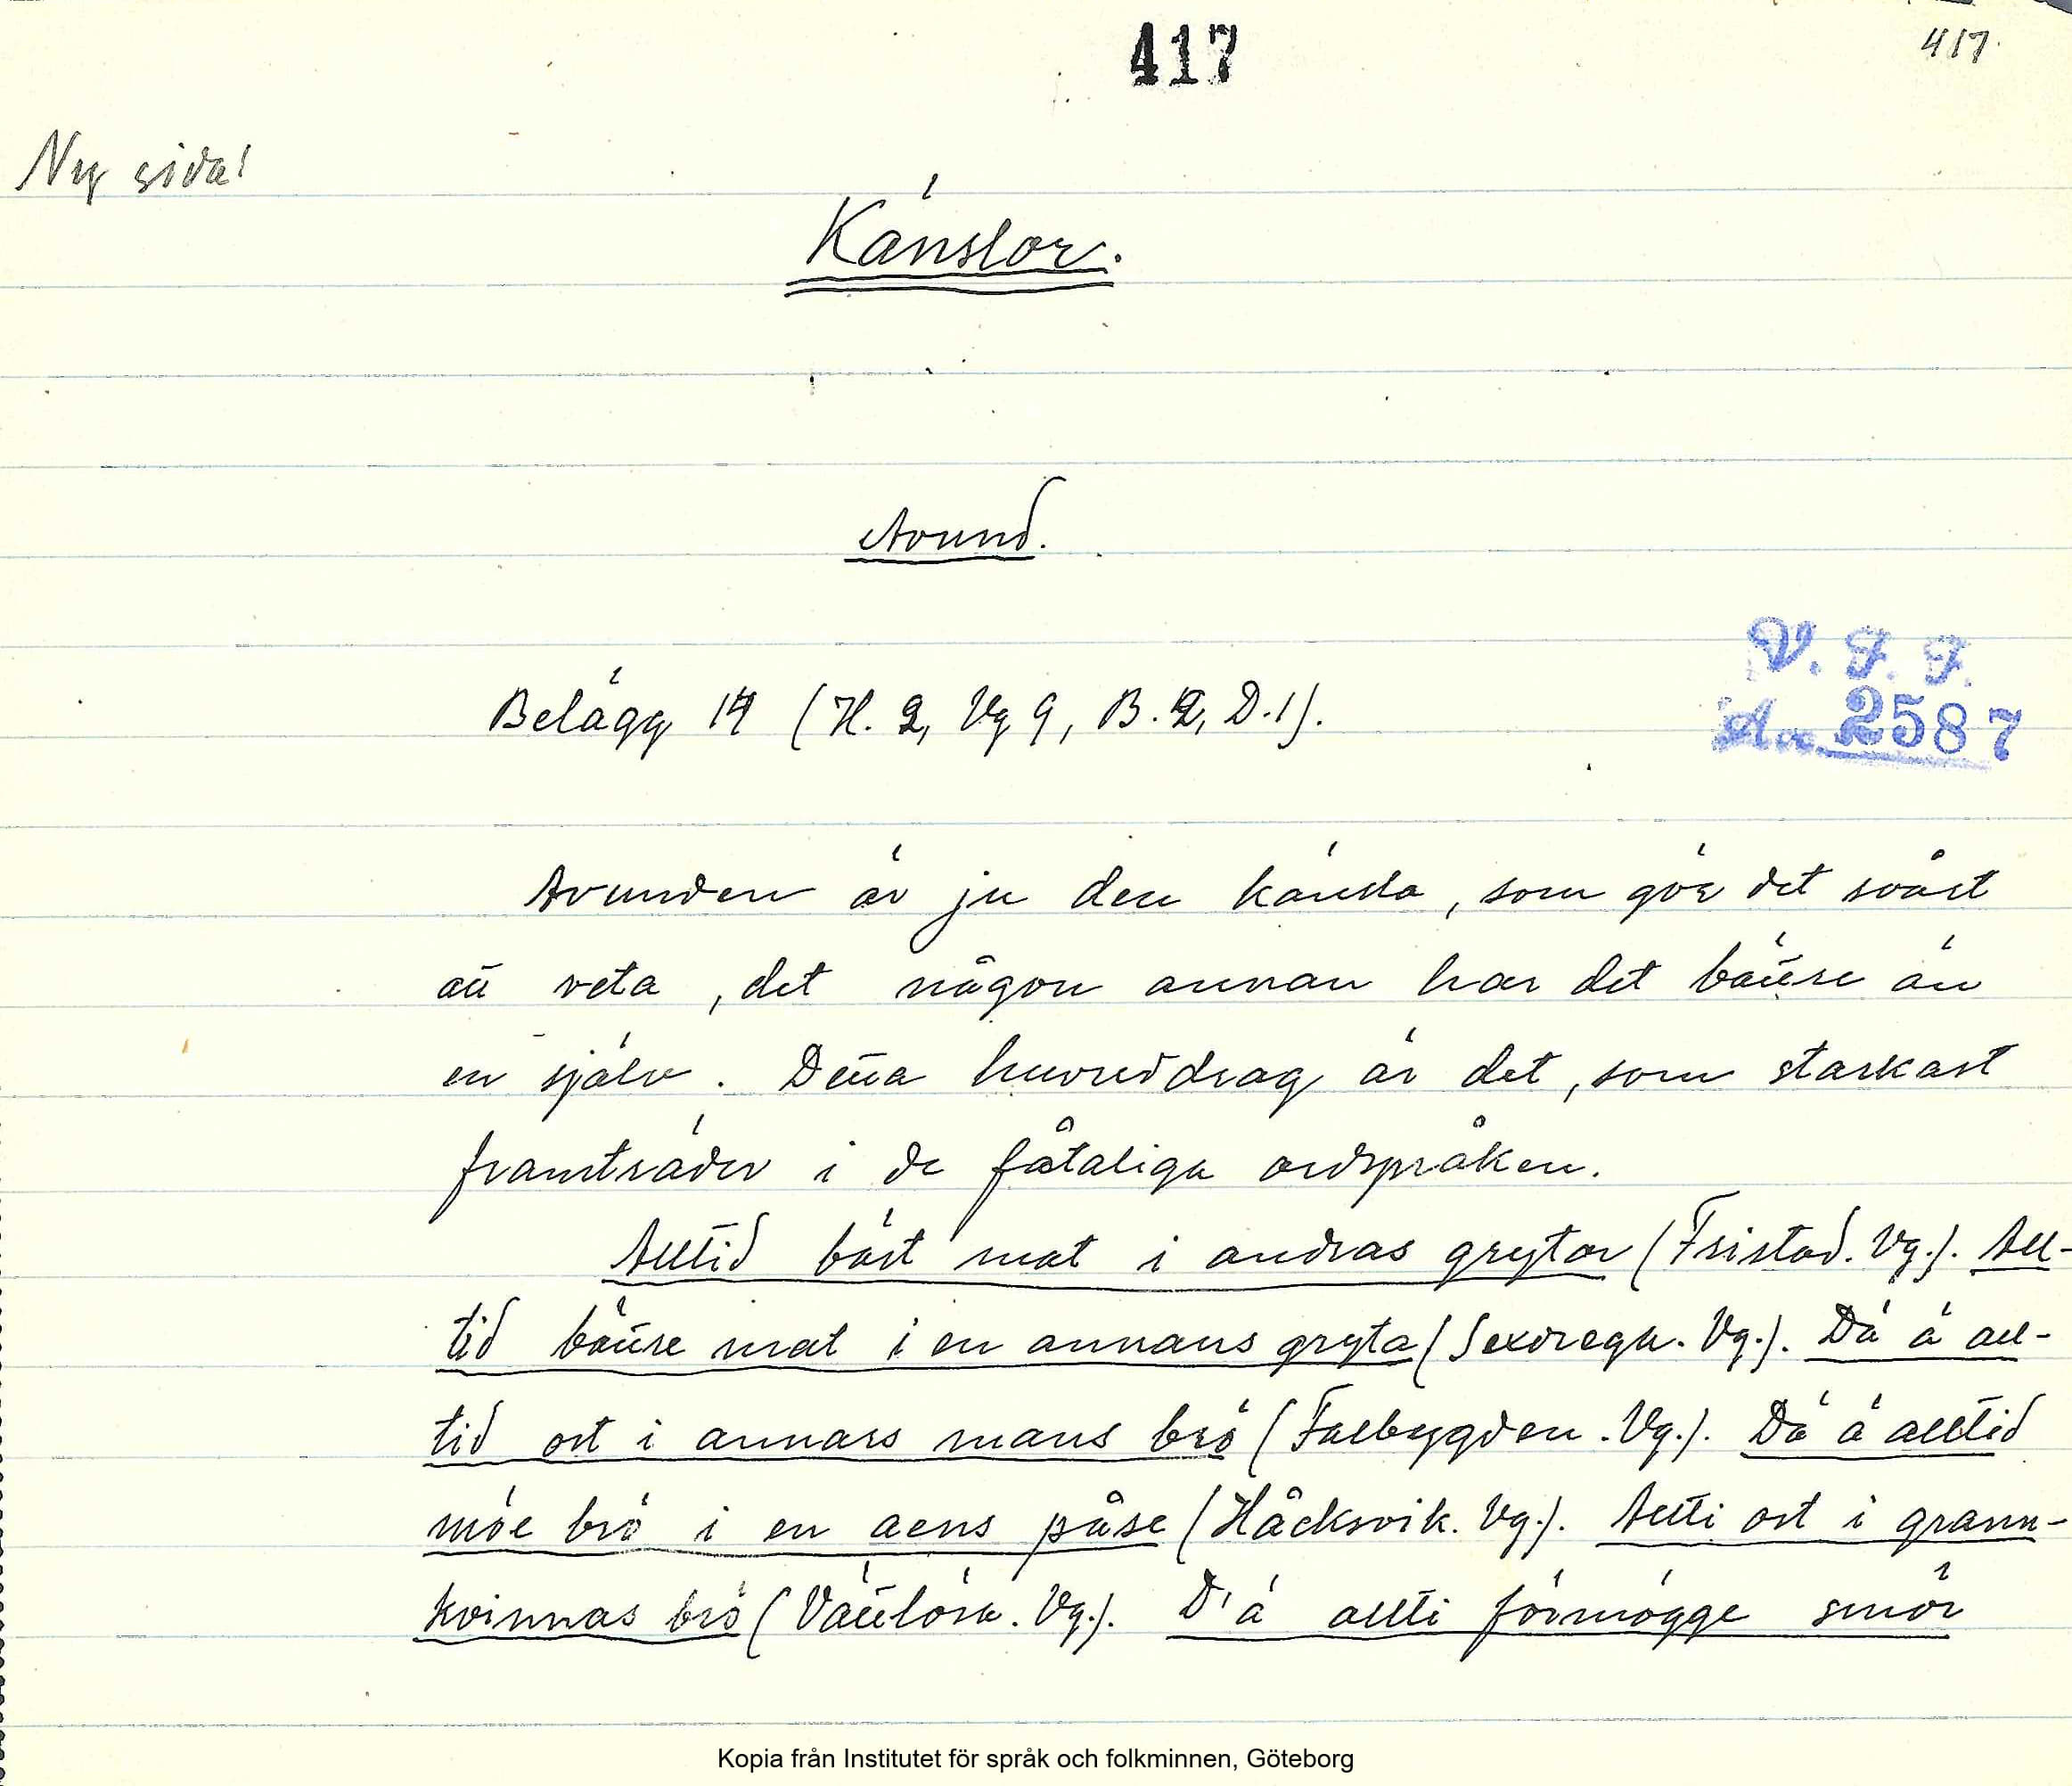 417
417.
Ny sida!
Känslor.
Avund.
V. F. F.
Belägg 14 (H. 2, Vg 9, B. 2, D. 1).
Acc. 2587
Avunden är ju den känsla, som gör det svårt
att veta, det någon annan har det bättre än
en själv. Detta huvuddrag är det, som starkast
framträder i de fåtaliga ordspråken.
Alltid bäst mat i andras grytor (Fristad. Vg.). All-
tid bättre mat i en annans gryta (Sexdrega. Vg.). Dä ä all-
tid ost i annars mans brö (Falbygden. Vg.). Dä ä alltid
möe brö i en aens påse (Håcksvik. Vg.). Allti ost i grann-
kvinnas brö (Vättlösa. Vg.). D'ä allti förmögge smör
Kopia från Institutet för språk och folkminnen, Göteborg